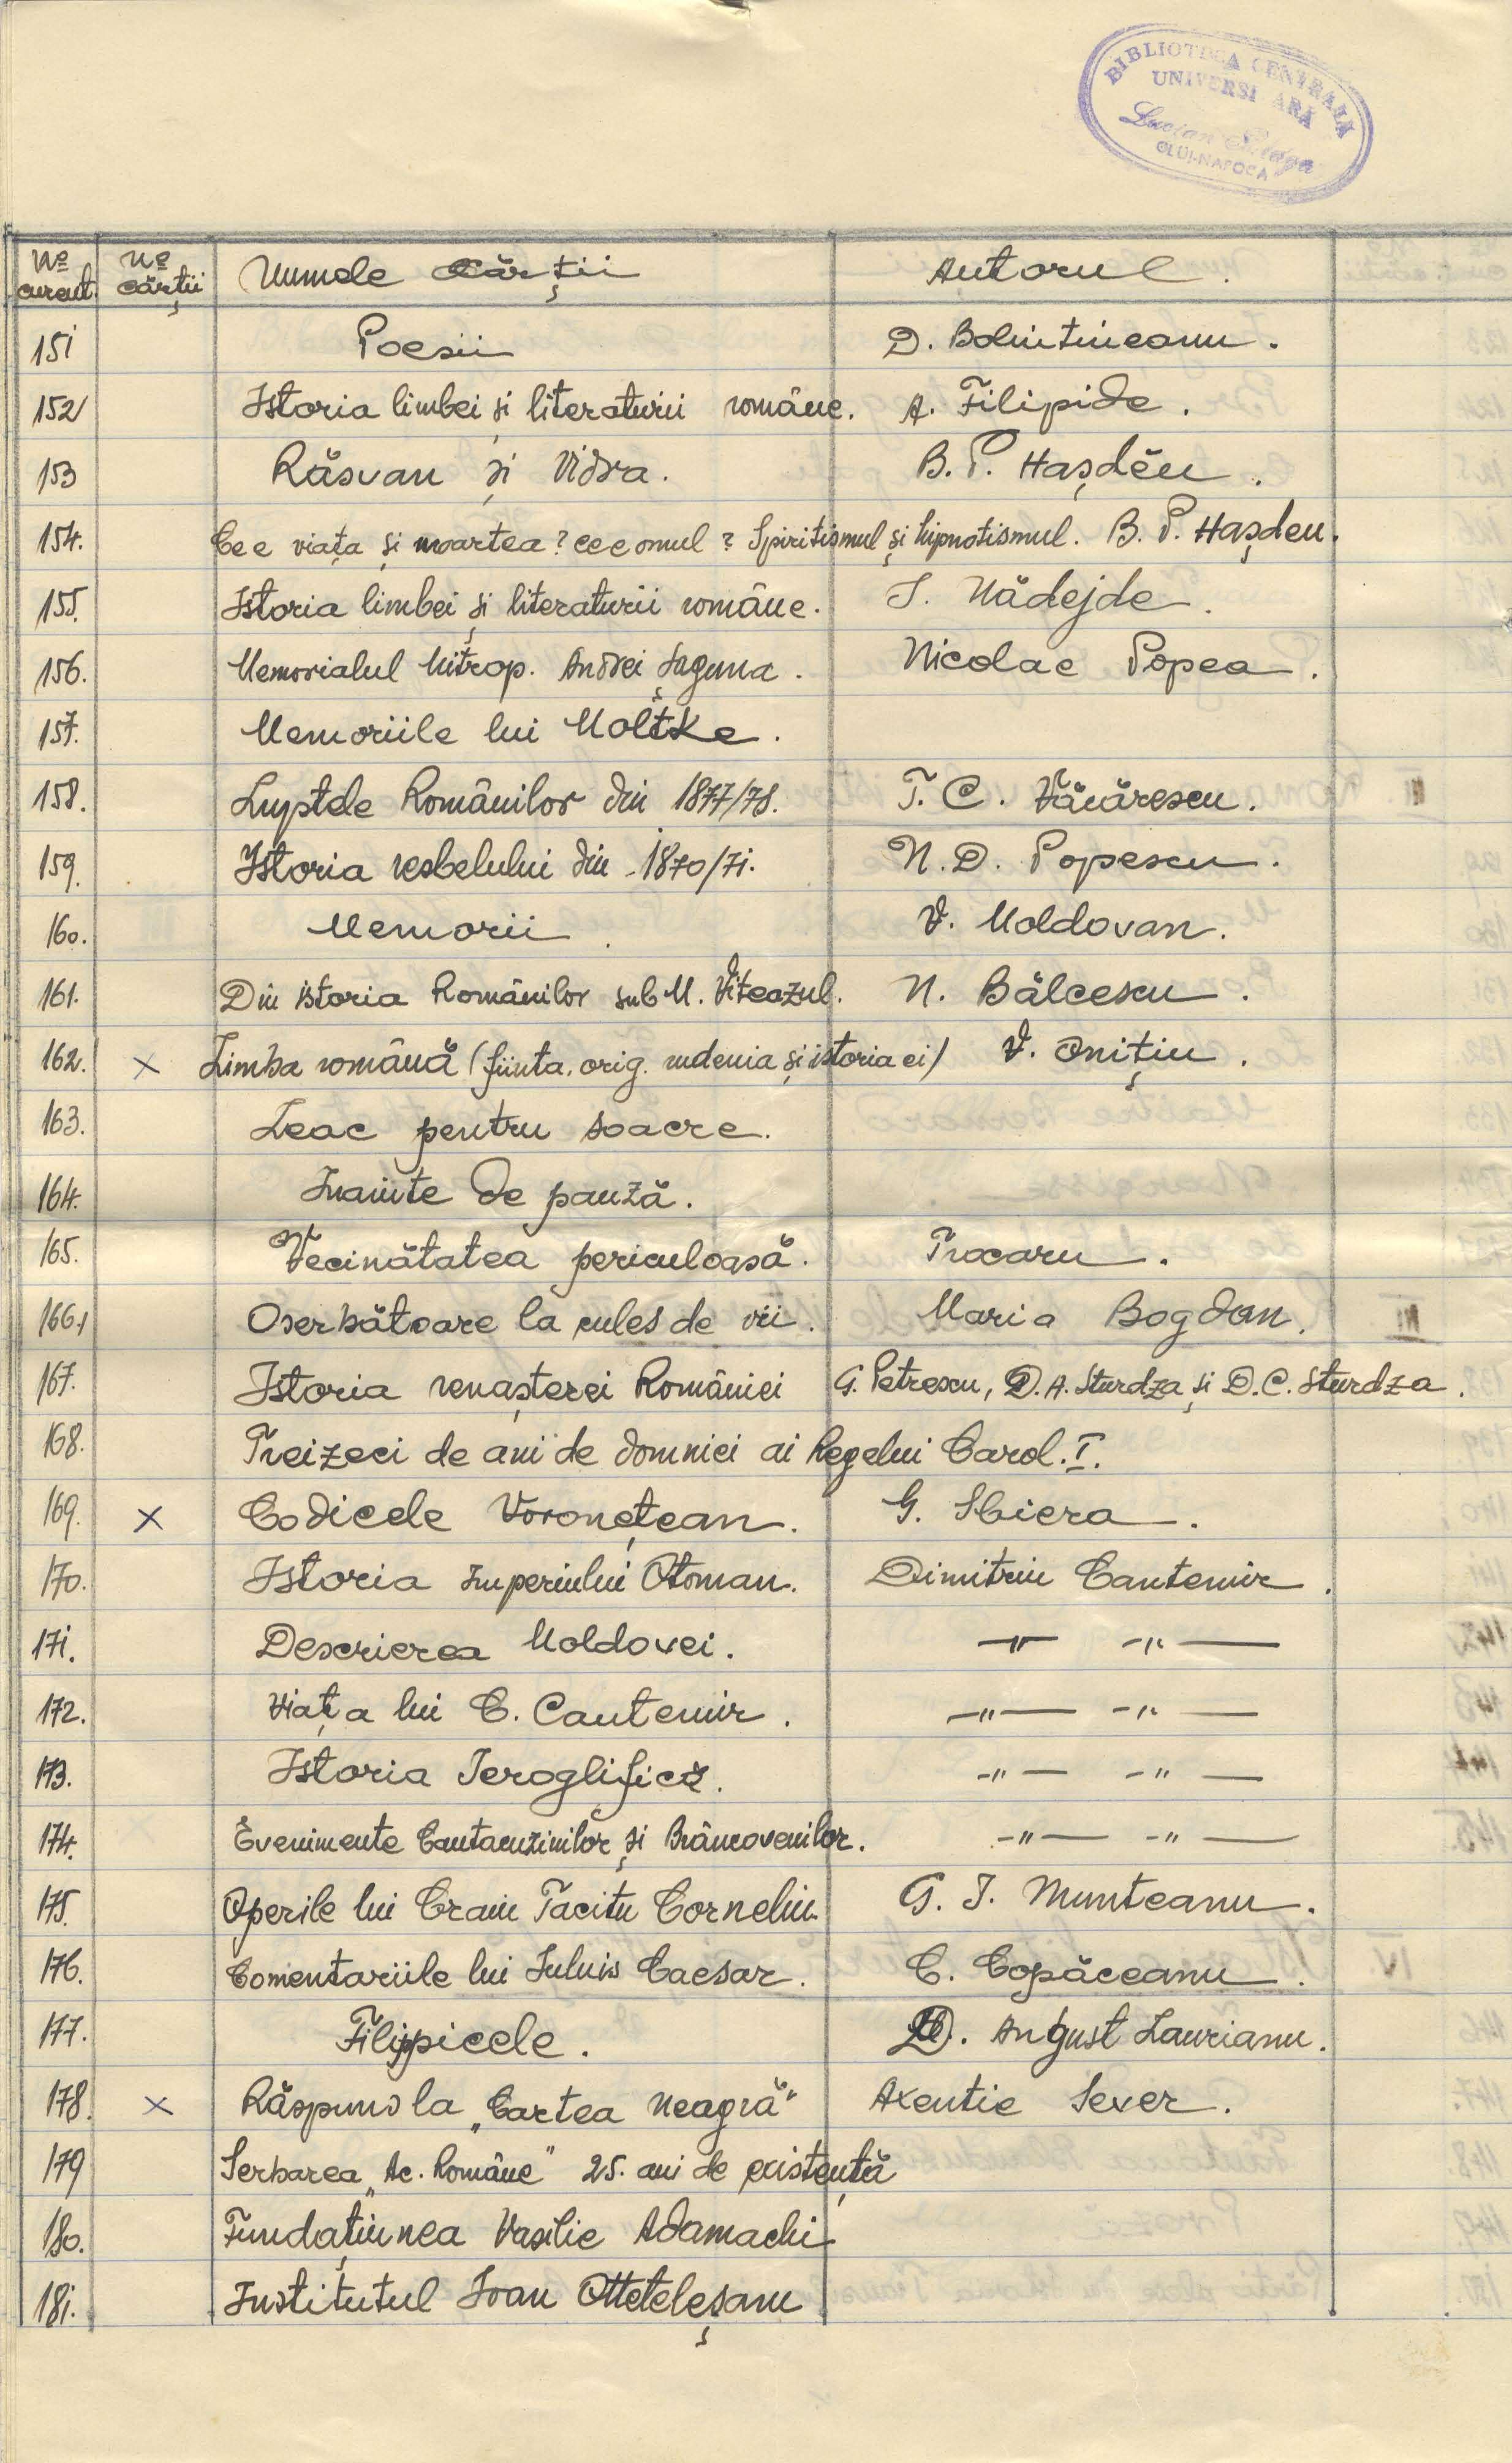 BIBLIOTECA CENTRALĂ
UNIVERSITARĂ
Lucian Blaga
CLUJ-NAPOCA
No curent. No cărții Numele cărții Autorul.
151 Poesii D. Bolintineanu.
152 Istoria limbei și literaturii române. A. Filipide.
153 Răsvan și Vidra. B. P. Hașdĕu.
154. Ce e viața și moartea? ce e omul? Spiritismul și hipnotismul. B. P. Hașdeu.
155. Istoria limbei și literaturii române. I. Nădejde.
156. Memorialul Mitrop. Andrei Șaguna. Nicolae Popea.
157. Memoriile lui Moltke.
158. Luptele Românilor din 1877/78. T. C. Văcărescu.
159. Istoria resbelului din 1870/71. N. D. Popescu.
160. Memorii. V. Moldovan.
161. Din istoria Românilor sub M. Viteazul. N. Bălcescu.
162. × Limba română (ființa, orig. rudenia și istoria ei) V. Onițiu.
163. Leac pentru soacre.
164. Inainte de pauză.
165. Vecinătatea periculoasă. Trocaru.
166. O serbătoare la cules de vii. Maria Bogdan.
167. Istoria renașterei României G. Petrescu, D. A. Sturdza și D. C. Sturdza.
168. Treizeci de ani de domniei ai Regelui Carol. I.
169. × Codicele Voronețean. G. Sbiera.
170. Istoria Imperiului Otoman. Dimitriu Cantemir.
171. Descrierea Moldovei. —"— —"—
172. Viața lui C. Cantemir. —"— —"—
173. Istoria Ieroglifică. —"— —"—
174. Evenimente Cantacuzinilor și Brâncovenilor. —"— —"—
175. Operile lui Craiu Tacitu Corneliu. G. I. Munteanu.
176. Comentariile lui Iuluis Caesar. C. Copăceanu.
177. Filippicele. D. August Laurianu.
178. × Răspuns la „Cartea Neagră" Axentie Sever.
179 Serbarea „Ac. Române" 25. ani de existență
180. Fundațiunea Vasilie Adamachi
181. Institutul Ioan Otteteleșanu